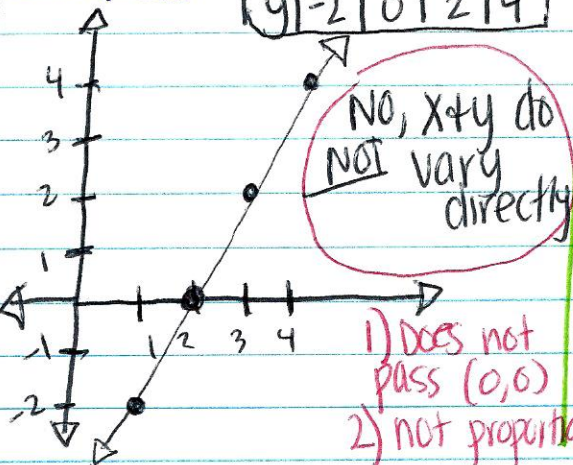 y | -2 | 0 | 2 | 4
4
3
2
1
-1
-2
1 2 3 4
NO, x+y do
NOT vary
directly
1) Does not
pass (0,0)
2) not